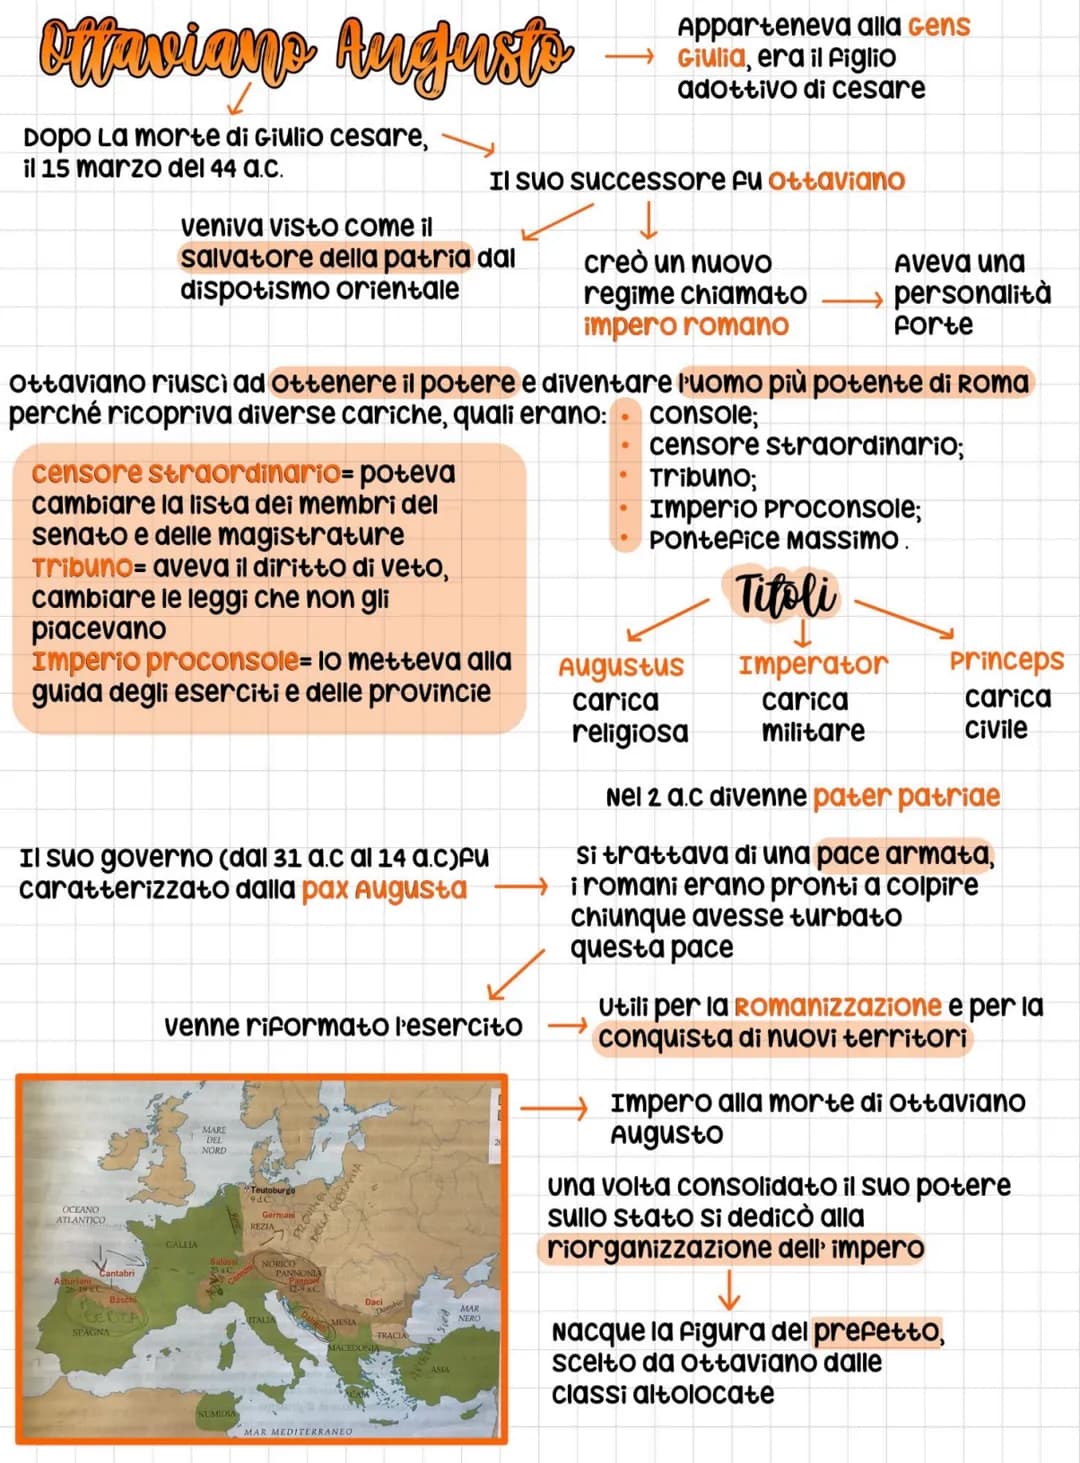 Ottaviano Augusto
Apparteneva alla Gens
Giulia, era il figlio
adottivo di cesare
Dopo La morte di Giulio cesare,
il 15 marzo del 44 a.c.
Il suo successore fu Ottaviano
veniva visto come il
salvatore della patria dal
dispotismo orientale
creò un nuovo
regime chiamato
impero romano
Aveva una
personalità
forte
Ottaviano riuscì ad ottenere il potere e diventare l'uomo più potente di Roma
perché ricopriva diverse cariche, quali erano:
• console;
• censore straordinario;
• Tribuno;
• Imperio Proconsole;
• Pontefice Massimo.
censore straordinario= poteva
cambiare la lista dei membri del
senato e delle magistrature
Tribuno= aveva il diritto di veto,
cambiare le leggi che non gli
piacevano
Imperio proconsole= lo metteva alla
guida degli eserciti e delle provincie
Titoli
Augustus
carica
religiosa
Imperator
carica
militare
Princeps
carica
civile
Nel 2 a.c divenne pater patriae
Il suo governo (dal 31 a.c al 14 a.c)fu
caratterizzato dalla pax Augusta
si trattava di una pace armata,
i romani erano pronti a colpire
chiunque avesse turbato
questa pace
venne riformato l'esercito
Utili per la Romanizzazione e per la
conquista di nuovi territori
Impero alla morte di Ottaviano
Augusto
una volta consolidato il suo potere
sullo Stato si dedicò alla
riorganizzazione dell' impero
Nacque la figura del prefetto,
scelto da Ottaviano dalle
classi altolocate
MARE
DEL
NORD
OCEANO
ATLANTICO
Teutoburgo
9 d.C.
Germani
REZIA
PROVINCIA
DELLA GERMANIA
GALLIA
Salassi
25 a.C.
NORICO
PANNONIA
Pannoni
12-9 a.C.
Cantabri
Asturiani
26-19 a.C.
Baschi
SPAGNA
Daci
MAR
NERO
ITALIA
MESIA
TRACIA
MACEDONIA
ASIA
ACAIA
NUMIDIA
MAR MEDITERRANEO